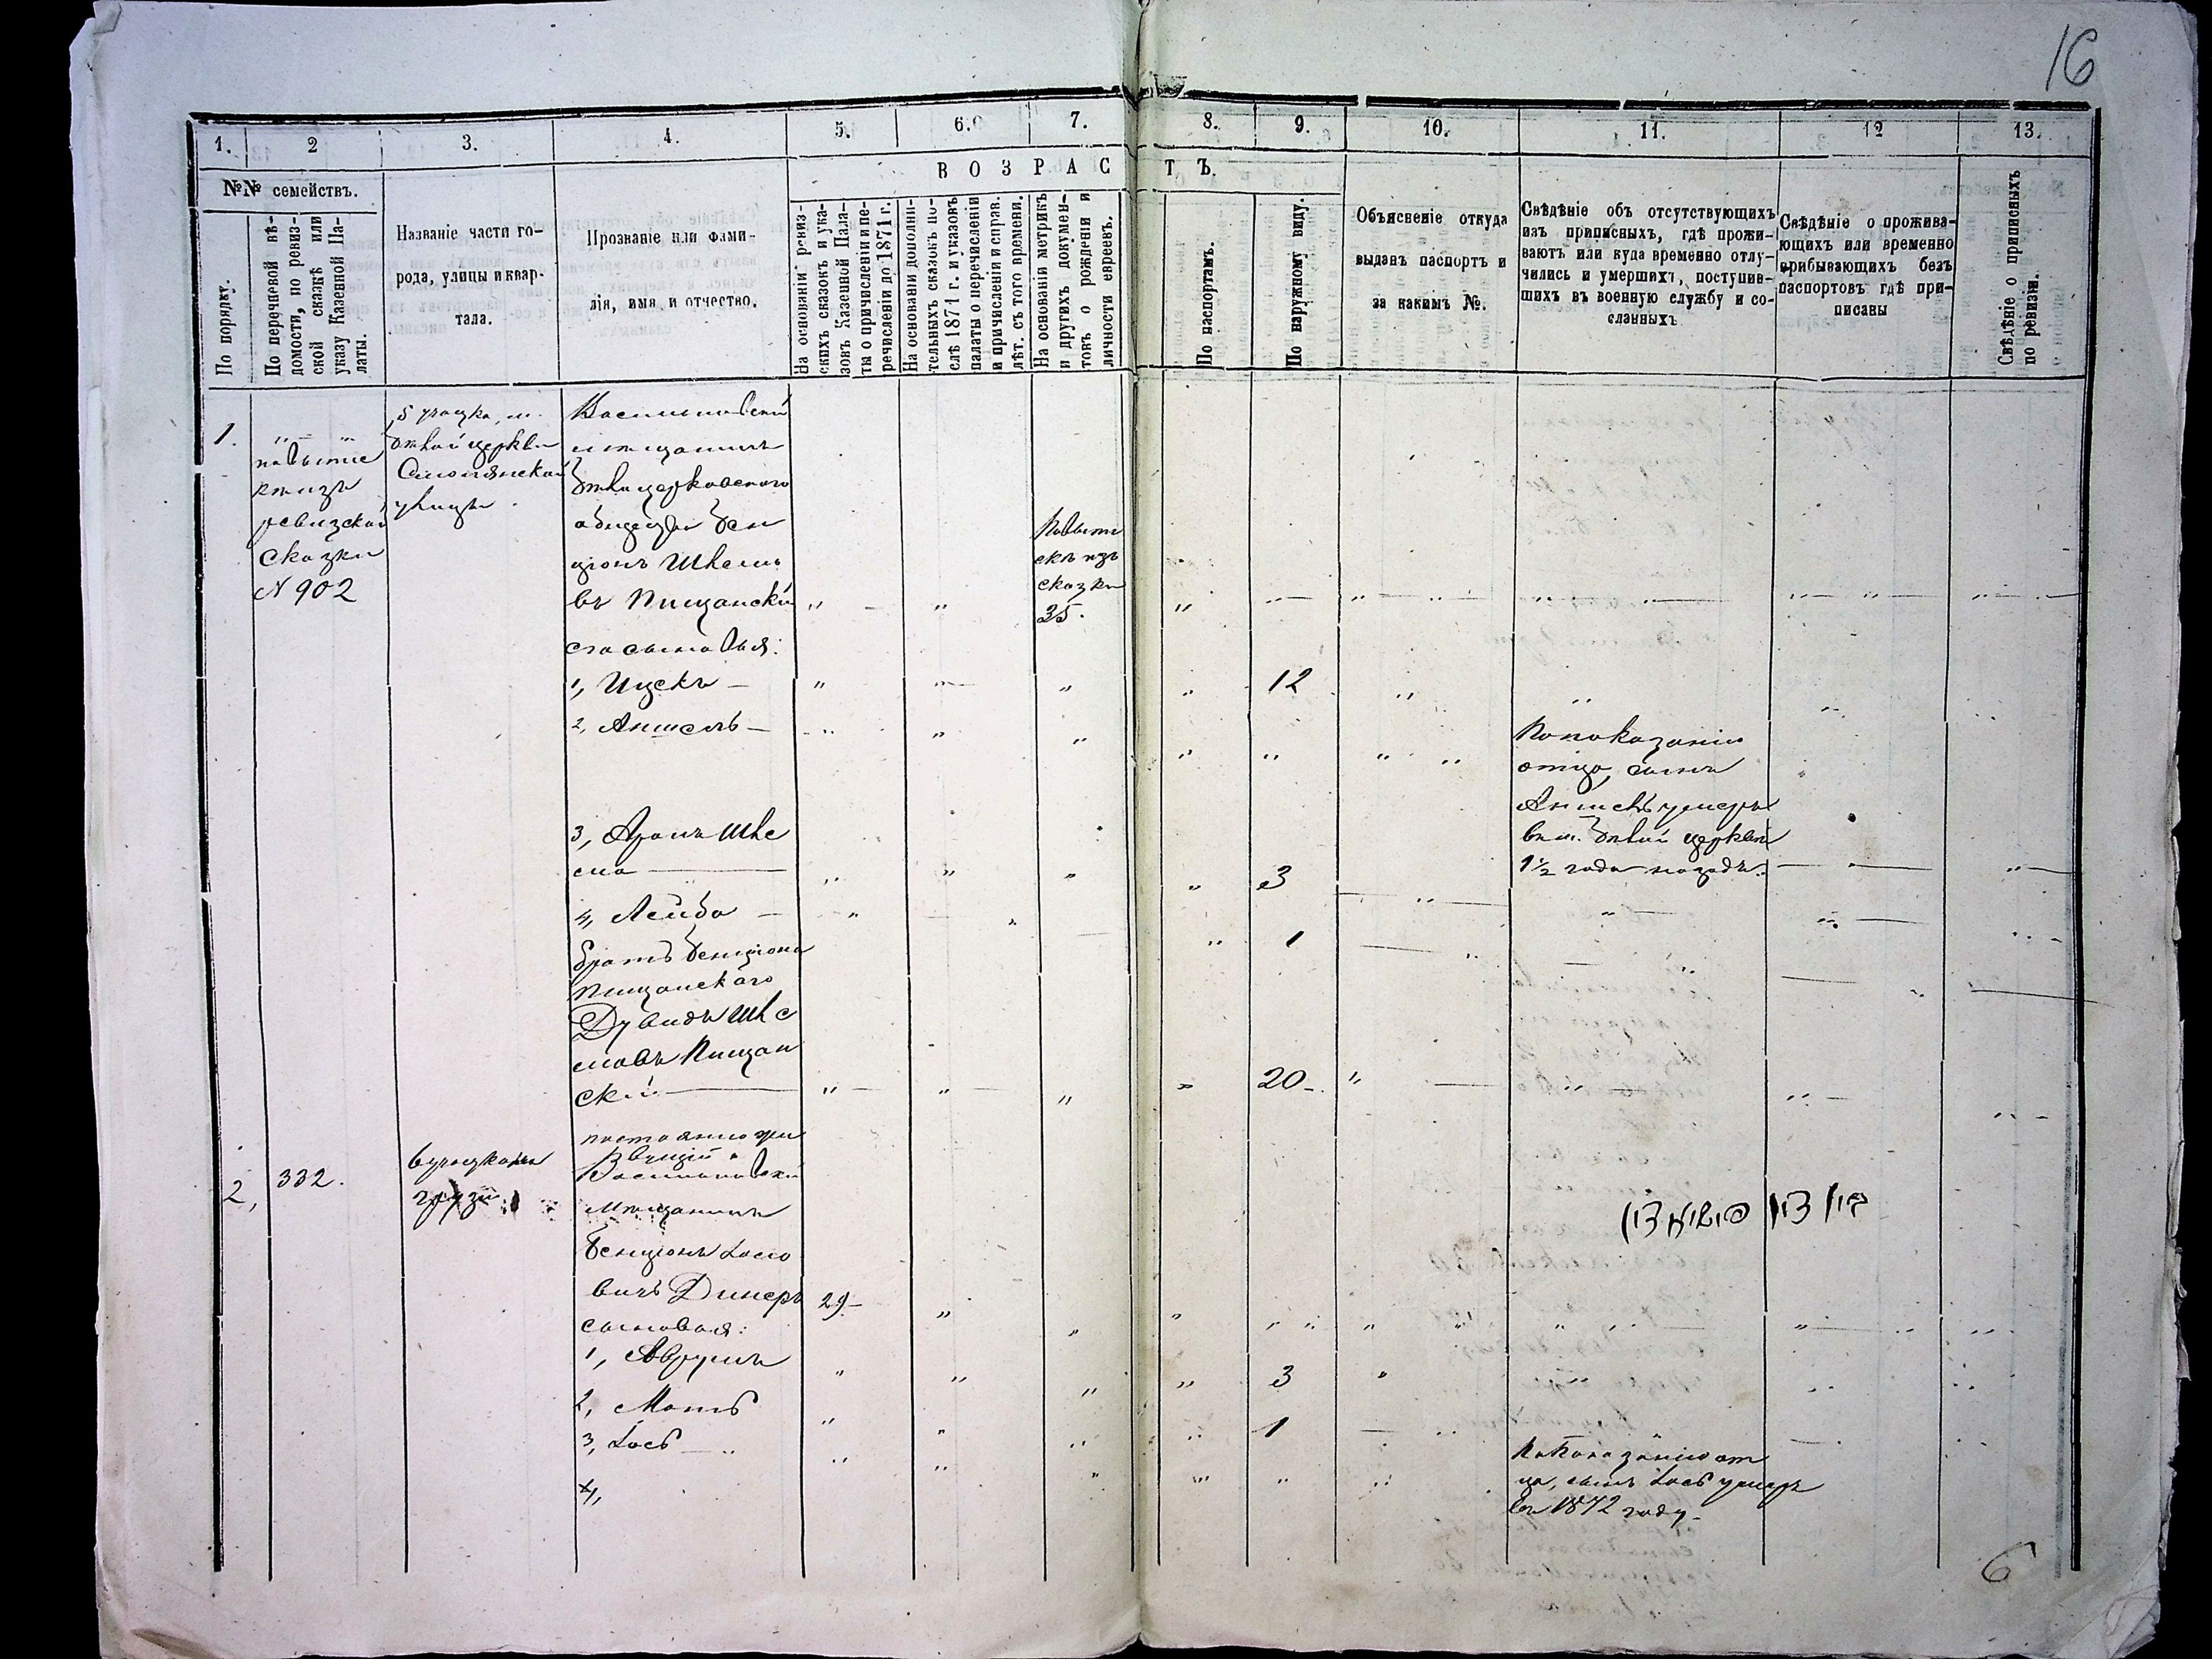 16
1.
2
3.
4.
5.
6.
7.
8.
9.
10.
11.
12
13.
№№ семействъ.
ВОЗРАСТЪ.
По порядку.
По перечневой вѣ-
домости, по ревиз-
ской сказкѣ или
указу Казенной Па-
латы.
Названіе части го-
рода, улицы и квар-
тала.
Прозваніе или фами-
лія, имя и отчество.
На основаніи ревиз-
скихъ сказокъ и ука-
зовъ Казенной Пала-
ты о причисленіи и пе-
речисленіи до 1871 г.
На основаніи дополни-
тельныхъ сказокъ по-
слѣ 1871 г. и указовъ
палаты о перечисленіи
и причисленіи и справ.
лѣт. съ того времени.
На основаніи метрикъ
и другихъ докумен-
товъ о рожденіи и
личности евреевъ.
По паспортамъ.
По наружному виду.
Объясненіе откуда
выданъ паспортъ и
за какимъ №.
Свѣдѣніе объ отсутствующихъ
изъ приписныхъ, гдѣ прожи-
ваютъ или куда временно отлу-
чились и умершихъ, поступив-
шихъ въ военную службу и со-
сланныхъ
Свѣдѣніе о прожива-
ющихъ или временно
прибывающихъ безъ
паспортовъ гдѣ при-
писаны
Свѣдѣніе о приписныхъ
по ревизіи.
1.
ревизской
сказки
№ 902
5 участка, м.
Бѣлой церкви
улицы
Васильковскій
мѣщанинъ
Бѣлоцерковскаго
общества Бен
ціонъ Шлемо
въ Пищанскій
его сыновья:
сказки
35.
1, Ицекъ — 12
2, Аншель —
По показанію
отца, сынъ
Аншель умеръ
въ м. Бѣлой церкви
1½ года назадъ.
3, Аронъ Шле
ма — 3
4, Лейба — 1
братъ Бенціона
Пищанскаго
Дувидъ Шле
мовъ Пищан
скій — 20
2, 332.
постоянно жи
вущій
Васильковскій
мѣщанинъ
Бенціонъ Іосіо
вичъ Динеръ 29
сыновья:
1, Аврумъ 3
2, Моть 1
3, Іось
4,
По показанію от
ца, сынъ Іось умеръ
въ 1872 году.
6